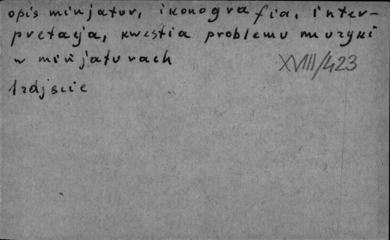 opis minjatur, ikonografia, inter-
pretacja, kwestia problemu muzyki
w minjaturach
XVIII/423
1 zdjęcie